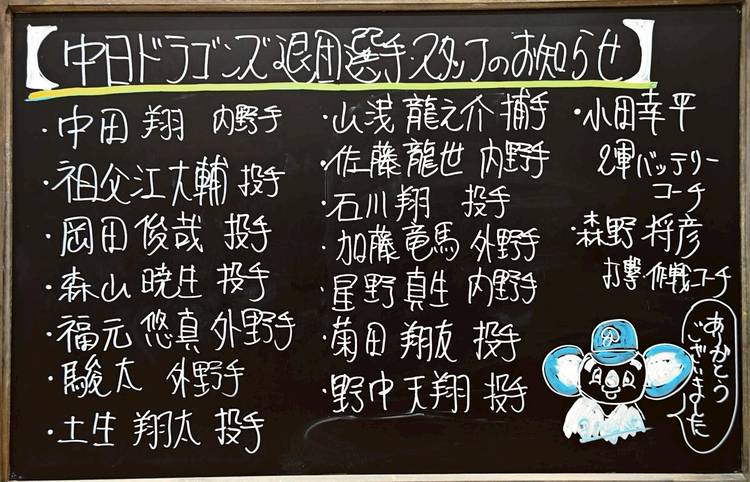 【中日ドラゴンズ退団選手・スタッフのお知らせ】
・中田 翔 内野手
・祖父江大輔 投手
・岡田 俊哉 投手
・森山 暁生 投手
・福元 悠真 外野手
・駿太 外野手
・土生 翔太 投手
・山浅 龍之介 捕手
・佐藤龍世 内野手
・石川翔 投手
・加藤竜馬 外野手
・星野真生 内野手
・菊田翔友 投手
・野中天翔 投手
・小田幸平
2軍バッテリー
コーチ
・森野 将彦
打撃・作戦コーチ
ありがとう
ございました